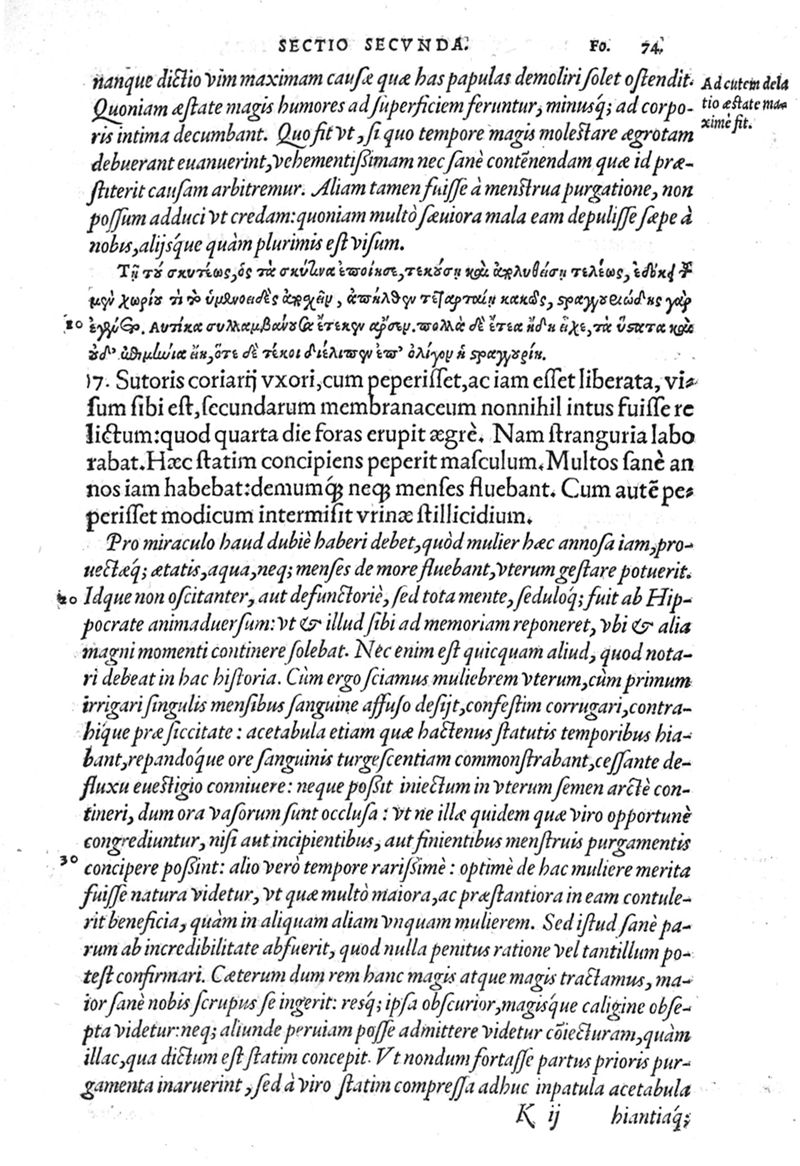 SECTIO SECVNDA. Fo. 74.
nanque dictio vim maximam causæ quæ has papulas demoliri solet ostendit.
Quoniam æstate magis humores ad superficiem feruntur, minusq́; ad corpo-
ris intima decumbant. Quo fit vt, si quo tempore magis molestare ægrotam
debuerant euanuerint, vehementißimam nec sanè contēnendam quæ id præ-
stiterit causam arbitremur. Aliam tamen fuisse à menstrua purgatione, non
possum adduci vt credam: quoniam multò sæuiora mala eam depulisse sæpe à
nobis, alijsque quàm plurimis est visum.
Ad cutem dela
tio æstate ma-
ximè fit.
Τῇ τοῦ σκυτέως, ὃς τὰ σκύτινα ἐποίησε, τεκούσῃ καὶ
χωρίου τι τὸ
10
17. Sutoris coriarij vxori, cum peperisset, ac iam esset liberata, vi-
sum sibi est, secundarum membranaceum nonnihil intus fuisse re
lictum: quod quarta die foras erupit ægrè. Nam stranguria labo
rabat. Hæc statim concipiens peperit masculum. Multos sanè an
nos iam habebat: demumq́ꝫ neqꝫ menses fluebant. Cum autē pe-
perisset modicum intermisit vrinæ stillicidium.
Pro miraculo haud dubiè haberi debet, quòd mulier hæc annosa iam, pro-
uectæq́; ætatis, a qua, neq; menses de more fluebant, vterum gestare potuerit.
20 Idque non oscitanter, aut defunctoriè, sed tota mente, seduloq́; fuit ab Hip-
pocrate animaduersum: vt & illud sibi ad memoriam reponeret, vbi & alia
magni momenti continere solebat. Nec enim est quicquam aliud, quod nota-
ri debeat in hac historia. Cùm ergo sciamus muliebrem vterum, cùm primum
irrigari singulis mensibus sanguine affuso desijt, confestim corrugari, contra-
hique præ siccitate: acetabula etiam quæ hactenus statutis temporibus hia-
bant, repandoque ore sanguinis turgescentiam commonstrabant, cessante de-
fluxu euestigio conniuere: neque poßit iniectum in vterum semen arctè con-
tineri, dum ora vasorum sunt occlusa: vt ne illæ quidem quæ viro opportunè
congrediuntur, nisi aut incipientibus, aut finientibus menstruis purgamentis
30 concipere poßint: alio verò tempore rarißimè: optimè de hac muliere merita
fuisse natura videtur, vt quæ multò maiora, ac præstantiora in eam contule-
rit beneficia, quàm in aliquam aliam vnquam mulierem. Sed istud sanè pa-
rum ab incredibilitate absuerit, quod nulla penitus ratione vel tantillum po-
test confirmari. Cæterum dum rem hanc magis atque magis tractamus, ma-
ior sanè nobis scrupus se ingerit: resq́; ipsa obscurior, magisque caligine obse-
pta videtur: neq; aliunde peruiam posse admittere videtur cōiecturam, quàm
illac, qua dictum est statim concepit. Vt nondum fortasse partus prioris pur-
gamenta inaruerint, sed à viro statim compressa adhuc inpatula acetabula
K ij hiantiaq́;